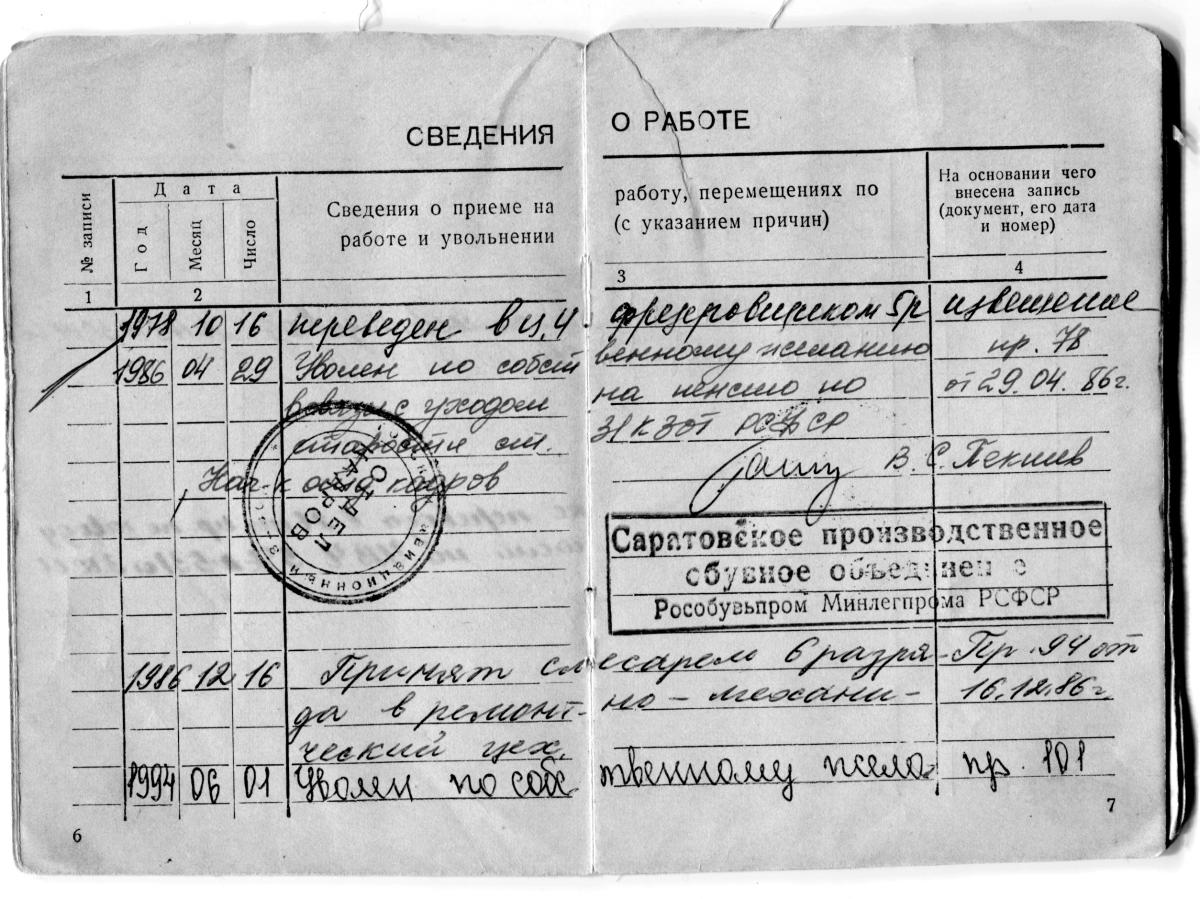 СВЕДЕНИЯ О РАБОТЕ
№ записи
Дата
Год
Месяц
Число
Сведения о приеме на работу, перемещениях по
работе и увольнении (с указанием причин)
На основании чего
внесена запись
(документ, его дата
и номер)
1 2 3 4
1978 10 16 переведен в ц. 4 фрезеровщиком 5р извещение
1986 04 29 Уволен по собственному желанию пр. 78
в связи с уходом на пенсию по от 29.04.86г.
старости ст. 31 КЗОТ РСФСР
Нач-к отд кадров В.С.
ОТДЕЛ
КАДРОВ
Саратовское производственное
обувное объединение
Рособувьпром Минлегпрома РСФСР
1986 12 16 Принят слесарем 6 разря- Пр. 94 от
да в ремонтно-механи- 16.12.86г
ческий цех.
1994 06 01 Уволен по собственному жела- пр. 101
6
7